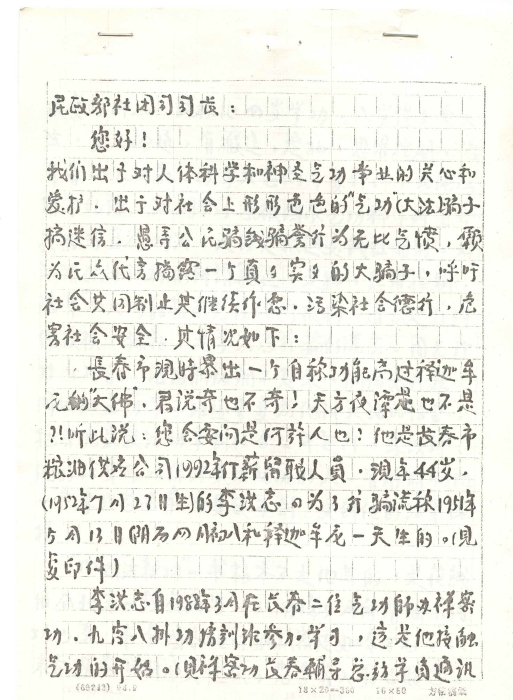 民政部社团司司长：
您好！
我们出于对人体科学和神圣气功事业的关心和
爱护，出于对社会上形形色色的"气功"(大法)骗子
搞迷信，愚弄公民骗钱骗誉行为无比气愤，愿
为民众代言揭露一个真真实实的大骗子，呼吁
社会共同制止其继续作恶，污染社会德行，危
害社会安全，其情况如下：
长春市现时暴出一个自称功能高过释迦牟
尼的"大佛"，君说奇也不奇！天方夜谭是也不是
?!听此说：您会要问是何许人也？他是长春市
粮油供应公司1992年停薪留职人员，现年44岁，
(1952年7月27日生)的李洪志。(为了行骗流称1951年
5月13日(阴历四月初八和释迦牟尼一天生的。(见
复印件)
李洪志自1988年3月在长春二位气功师办禅密
功、九宫八卦功培训班参加学习，这是他接触
气功的开始。(见禅密功长春辅导总站学员通讯
18×20=360
16×50